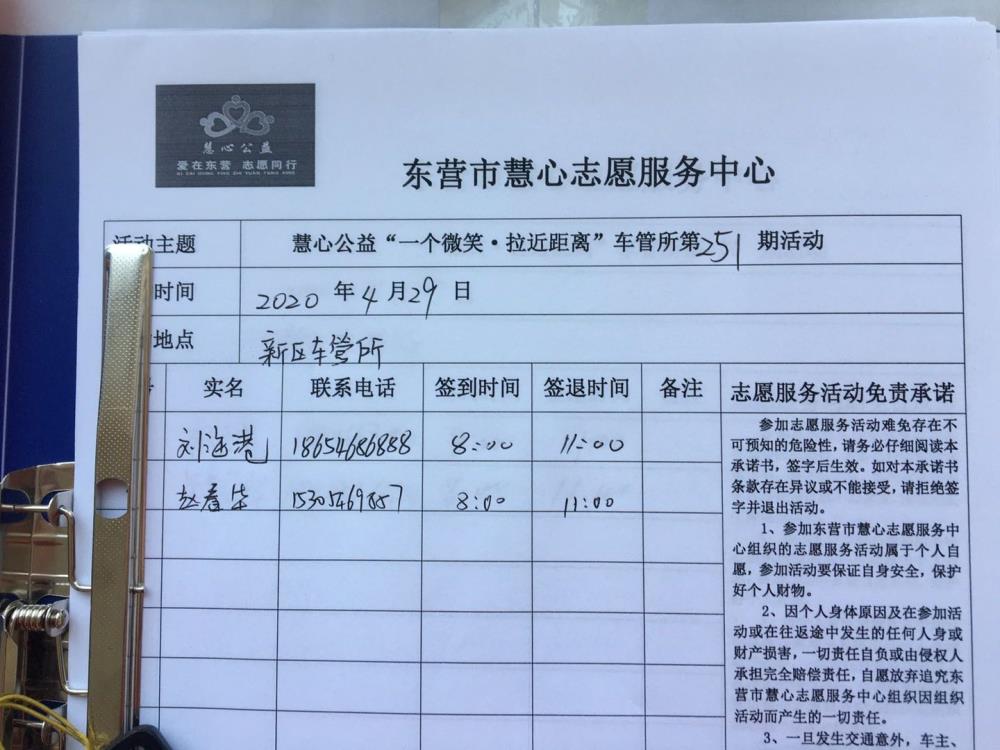 慧心公益
爱在东营 志愿同行
AI ZAI DONG YING ZHI YUAN TONG XING
东营市慧心志愿服务中心
活动主题 慧心公益“一个微笑·拉近距离”车管所第251期活动
时间 2020 年 4 月 29 日
地点 新区车管所
实名 联系电话 签到时间 签退时间 备注 志愿服务活动免责承诺
刘海港 18654686888 8:00 11:00
赵春华 15305469857 8:00 11:00
参加志愿服务活动难免存在不
可预知的危险性,请务必仔细阅读本
承诺书,签字后生效。如对本承诺书
条款存在异议或不能接受,请拒绝签
字并退出活动。
1、参加东营市慧心志愿服务中
心组织的志愿服务活动属于个人自
愿,参加活动要保证自身安全,保护
好个人财物。
2、因个人身体原因及在参加活
动或在往返途中发生的任何人身或
财产损害,一切责任自负或由侵权人
承担完全赔偿责任,自愿放弃追究东
营市慧心志愿服务中心组织因组织
活动而产生的一切责任。
3、一旦发生交通意外,车主、